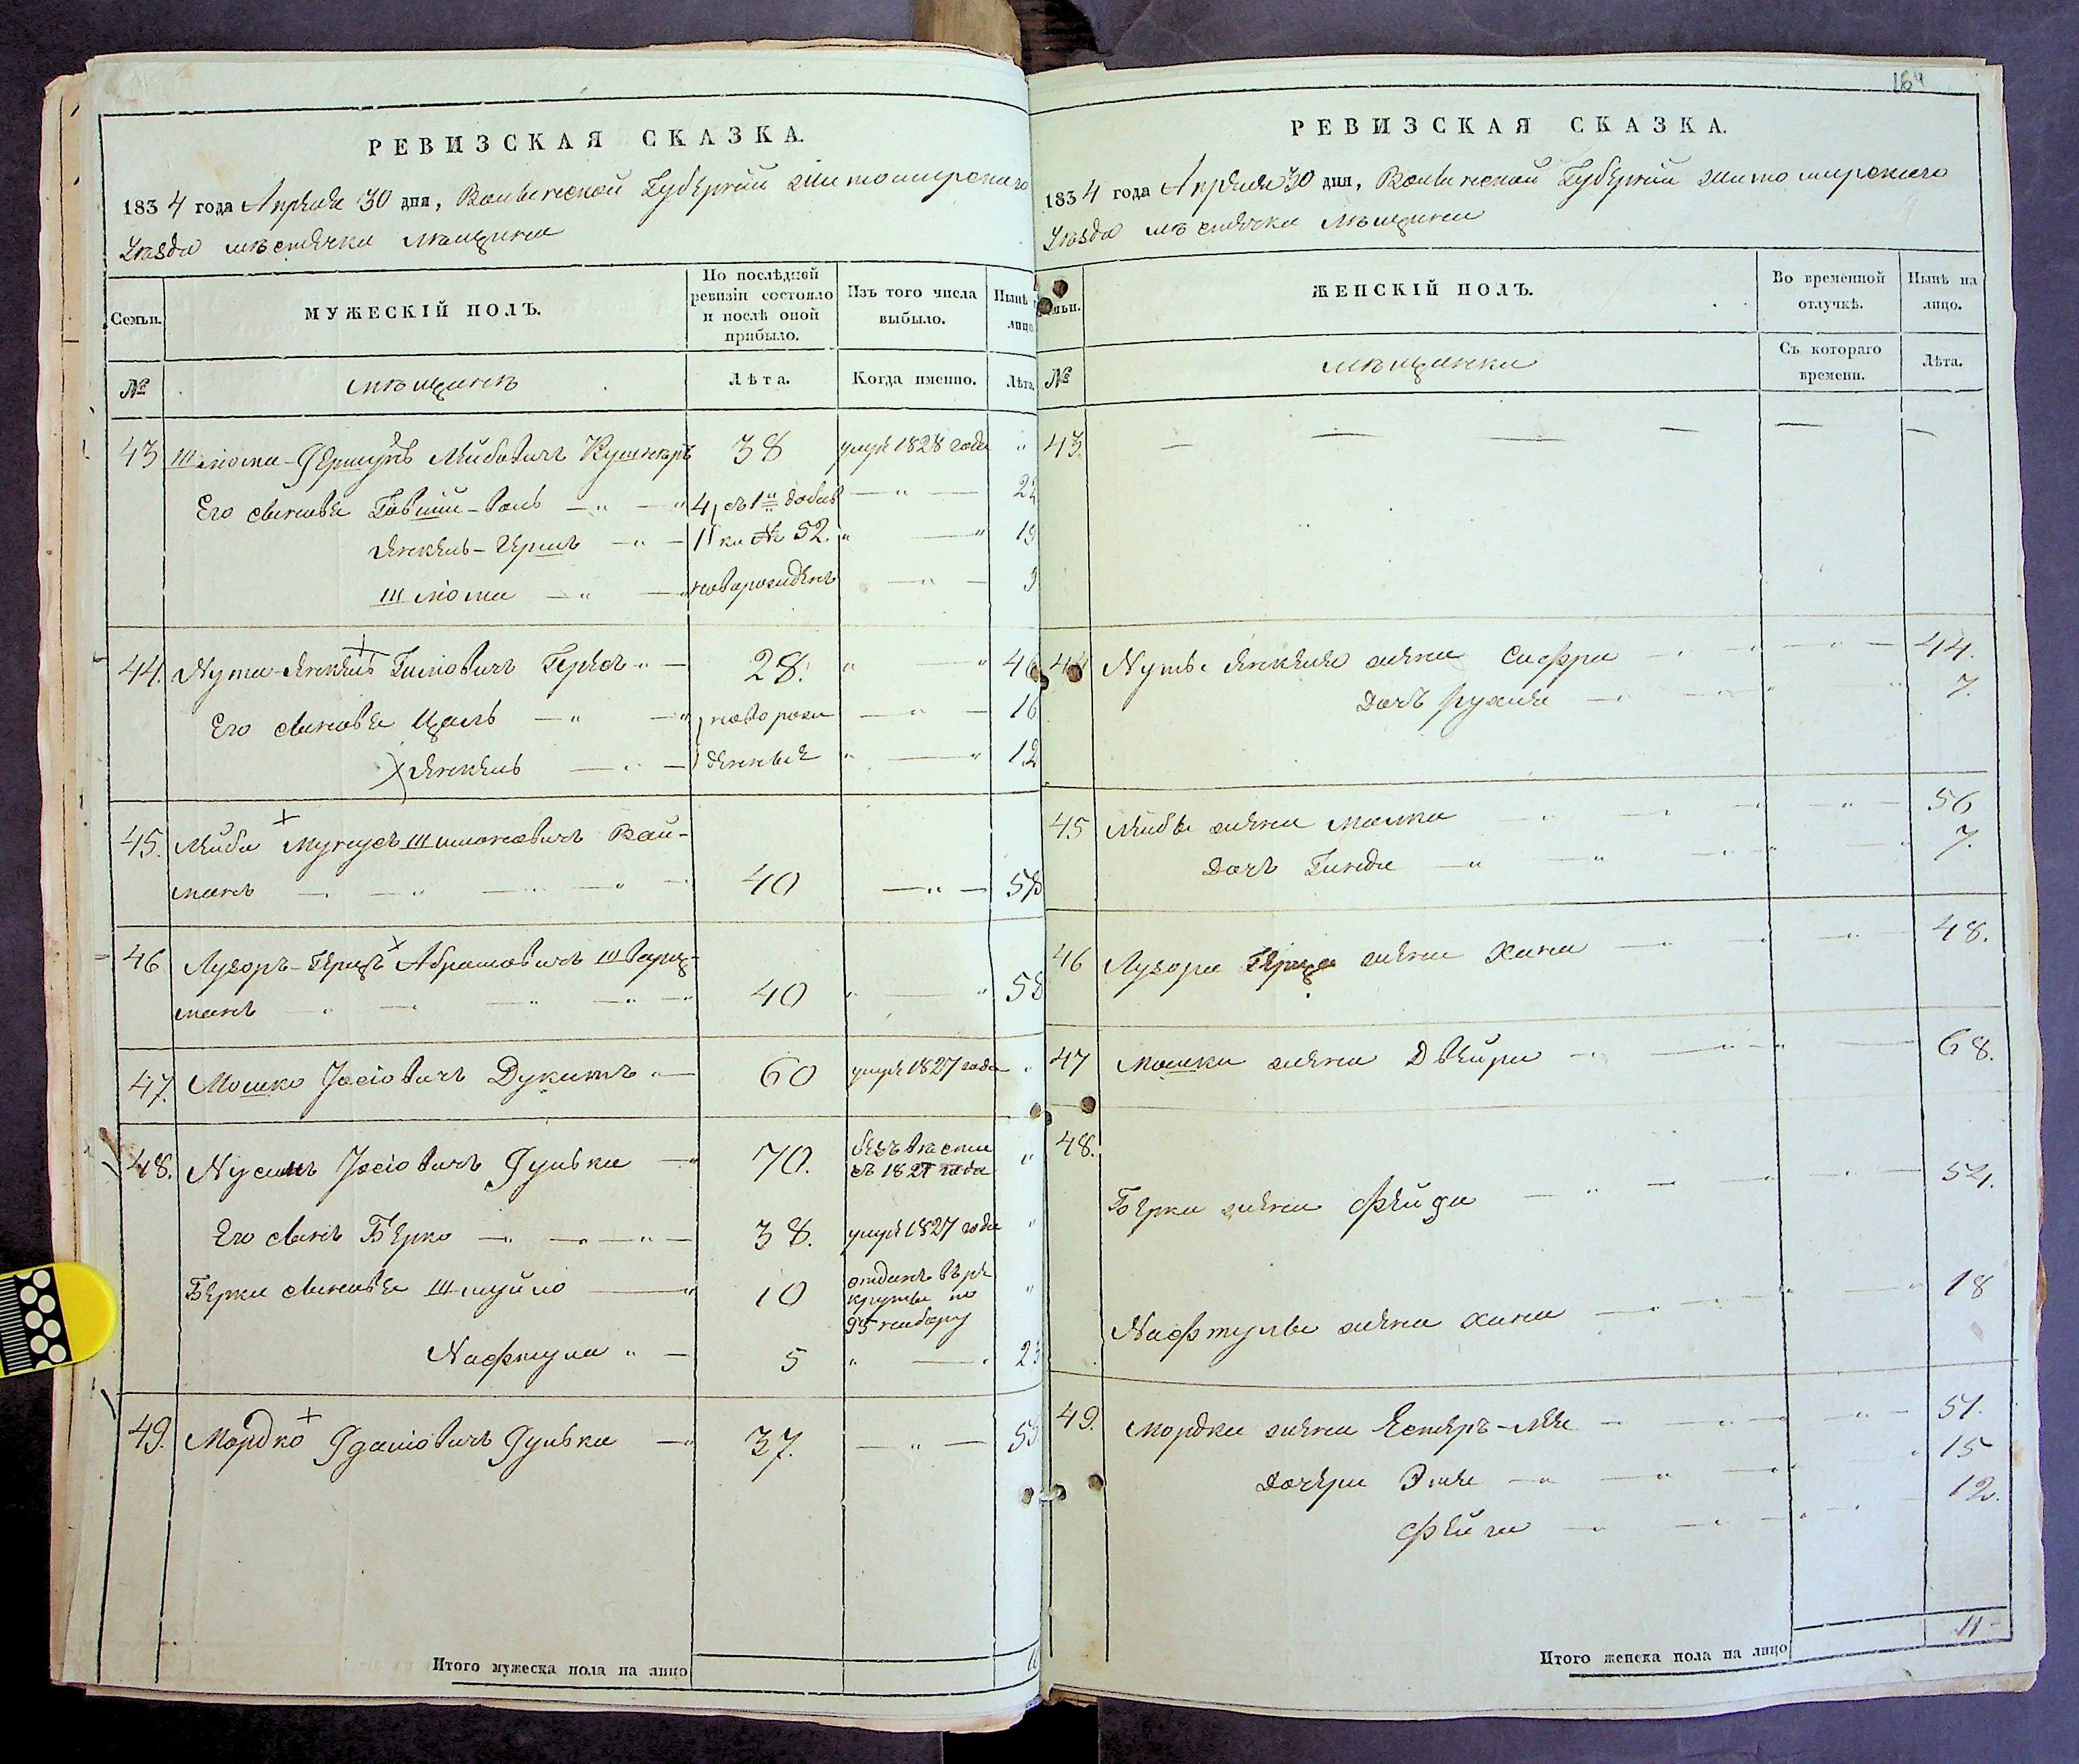 РЕВИЗСКАЯ СКАЗКА.
1834 года Апреля 30 дня, Волынской Губернии Житомирского
Уезда местечка
МУЖЕСКІЙ ПОЛЪ.
Семьи.
По послѣдней ревизіи состояло и послѣ оной прибыло.
Изъ того числа выбыло.
Нынѣ на лицо.
№
мещанъ
Лѣта.
Когда именно.
Лѣта.
43 Шлома- Лейбовичъ 38 умре 1828 года "
Его сыновья 4, съ 1й добав 22
Янкель-Герш 11 ки № 52. 19
Шлома новорожденъ 3
44. Нута-Янкель Герсъ 28. 46
Его сыновья новорож 16
Янкель денные 12
45. Лейба Мунусъ Шимоновичъ Вай-
манъ 40 58
46 Лузоръ-Герцъ Абрамовичъ Шварц-
манъ 40 58
47. Мошко Іосіовичъ 60 умре 1827 года "
48. Нусинъ Іосіовичъ Гулька 70. безъ вѣсти "
съ 1827 года
Его сынъ Берко 38. умре 1827 года "
Берка сыновья Шмуйло 10 отданъ въ ре "
круты по
95 набору
Нафтула 5 23
49. Мордко Гулька 37. 53
Итого мужеска пола на лицо
164
РЕВИЗСКАЯ СКАЗКА.
1834 года Апреля 30 дня, Волынской Губернии Житомирского
Уезда местечка
Семьи.
ЖЕНСКІЙ ПОЛЪ.
Во временной отлучкѣ.
Нынѣ на лицо.
№
мещанки
Съ котораго времени.
Лѣта.
43.
44 Нуты Янкеля жена Сифра 44.
Дочь Рухля 7.
45 Лейбы жена Малка 56
Дочь Гинда 7.
46 Лузора Герца жена Хана 48.
47 Мошка жена Двейра 68.
48.
Берка жена Фейда 54.
Нафтулы жена Хана 18
49. Мордка жена Естеръ-Лея 51.
Дочери 15
Фейга 12.
Итого женска пола на лицо 11